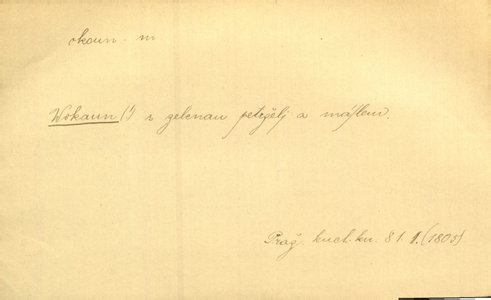 okoun - m
Wokaun (!) s zelenau petrželj a máslem.
Praž. kuch. kn. 81 1. (1805)